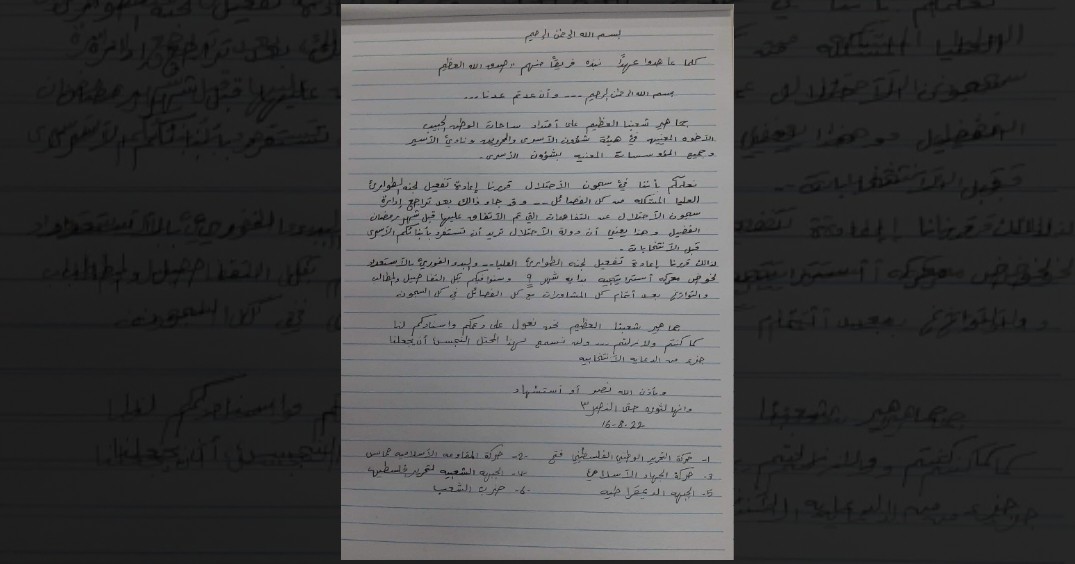 بسم الله الرحمن الرحيم
كلما عاهدوا عهداً نبذه فريقاً منهم "صدق الله العظيم
بسم الله الرحمن الرحيم --- وأن عدتم عدنا ...
جماهير شعبنا العظيم على أمتداد ساحات الوطن الحبيب
الأخوه المعنيين في هيئة شؤون الأسرى والمحررين ونادي الأسير
وجميع المؤسسات المعنيه بشؤون الأسرى .
نعلمكم بأننا في سجون الأحتلال قررنا إعادة تفعيل لجنه الطوارئ
العليا المشكله من كل الفصائل -- وقد جاء ذالك بعد تراجع إدارة
سجون الأحتلال عن التفاهمات التي تم الأتفاق عليها قبل شهر رمضان
الفضيل وهذا يعني أن دولة الأحتلال تريد أن تستفرد بأبنائكم الأسرى
قبل الأنتخابات .
لذالك قررنا إعادة تفعيل لجنه الطوارئ العليا -- والبدء الفوري بالأستعداد
لخوض معركه أستراتيجيه بدايه شهر 9 وسنوافيكم بكل التفاصيل والمطالب
والتواريخ بعد أتمام كل المشاورات مع كل الفصائل في كل السجون
جماهير شعبنا العظيم نحن نعول على دعمكم واسنادكم لنا
كما كنتم ولا زلتم ... ولن نسمح لهذا المحتل أن يجعلنا
جزء من الدعايه الأنتخابيه
وبأذن الله نصر أو أستشهاد
وانها لثوره حتى النصر
16-8-22
1- حركة التحرير الوطني الفلسطيني فتح 2- حركة المقاومه الأسلاميه حماس
3- حركة الجهاد الأسلامي 4- الجبهه الشعبيه لتحرير فلسطين
5- الجبهه الديمقراطيه 6- حزب الشعب